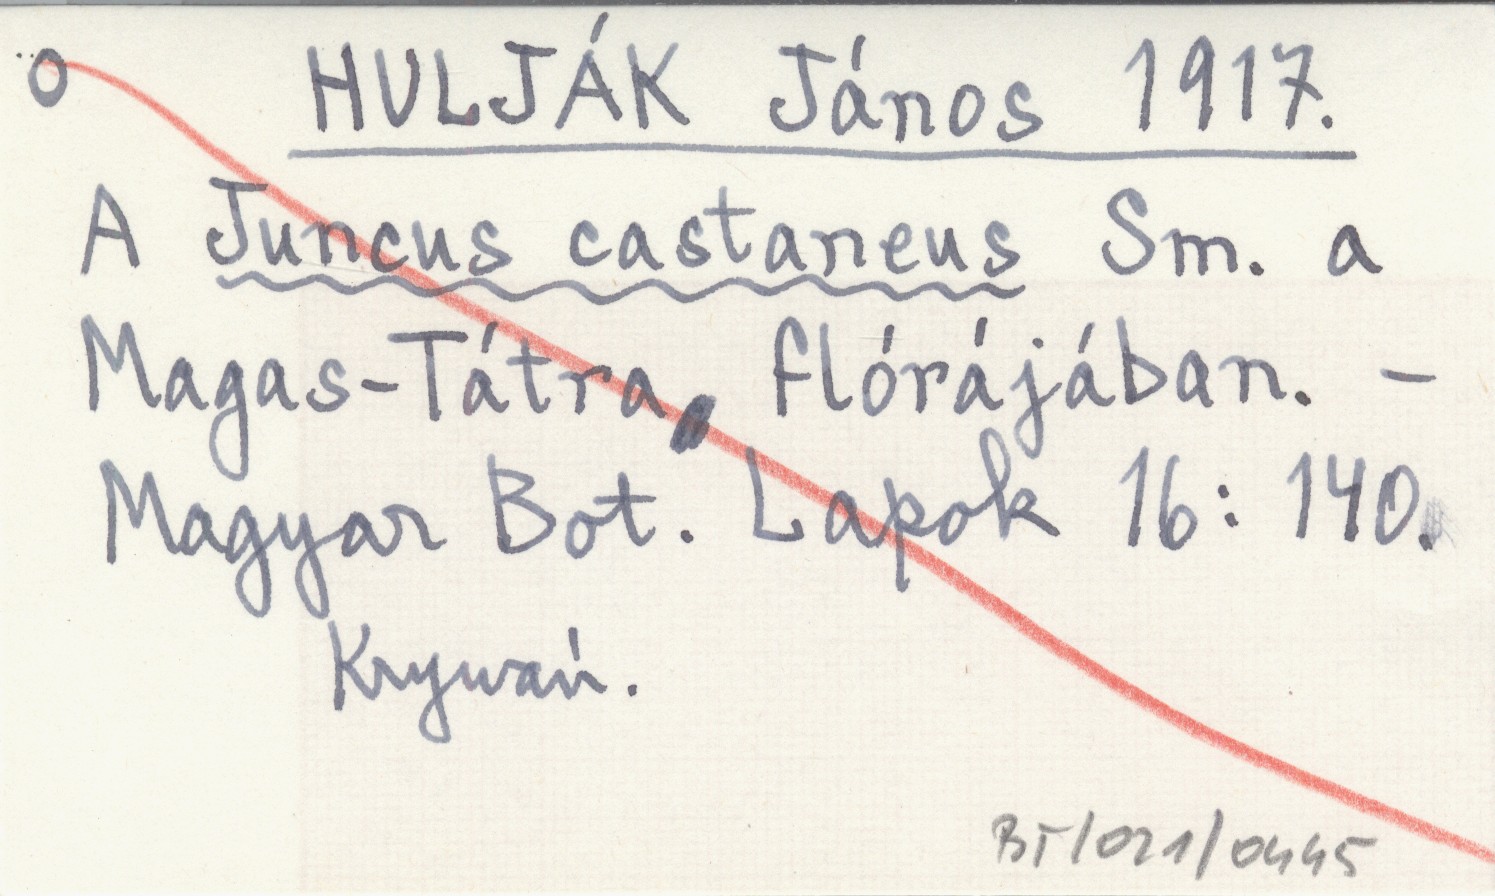 O HULJÁK János 1917.
A Juncus castaneus Sm. a
Magas-Tátra flórájában. -
Magyar Bot. Lapok 16: 140.
Krywań.
BT/021/0445